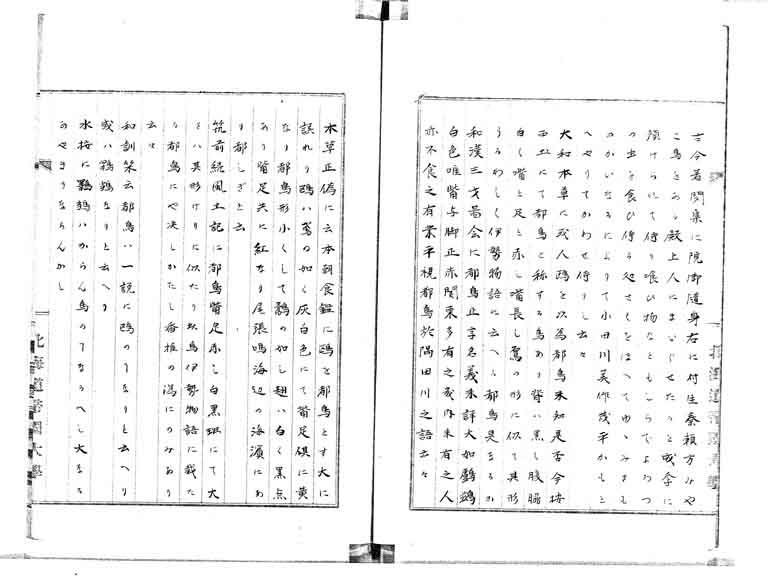 古今著聞集に院御随身右に付生秦頼方みや
こ鳥をある殿上人にまいらせたりと或今に
預けられて侍り喰ひ物などもしらでよろつ
の虫を食ひ侍り
のかいなるによりて小田川美作茂平かもと
へやりてかわせ侍りし云々
大和本草に或人鴎を以為都鳥未知是否今按
西土にて都鳥と称する鳥あり背い黒し腹脇
白く嘴と足と赤し嘴長し鴛の形に似て其形
うるわしく伊勢物語に云へる都鳥是なるか
和漢三才図会に都鳥正字名義未詳大如鸚鵡
白色唯嘴与脚正赤関東多有之畿内未有之人
亦不食之有業平視都鳥於隅田川之語云々
本草正偽に云本朝食鑑に鴎を都鳥とす大に
誤れり鴎ハ鳶の如く灰白色にて嘴足倶に黄
なり都鳥形小くして鷸の如し翅ハ白く黒点
あり嘴足共に紅なり尾張鳴海辺の海濱にあ
り都しぎと云
筑前続風土記に都鳥嘴足赤し白黒斑にて大
さハ其形けりに似たり此鳥伊勢物語に載た
る都鳥にや決しかたし香椎の潟にのみあり
云々
和訓栞云都鳥ハ一説に鴎の
北海道帝国大學
北海道帝国大學